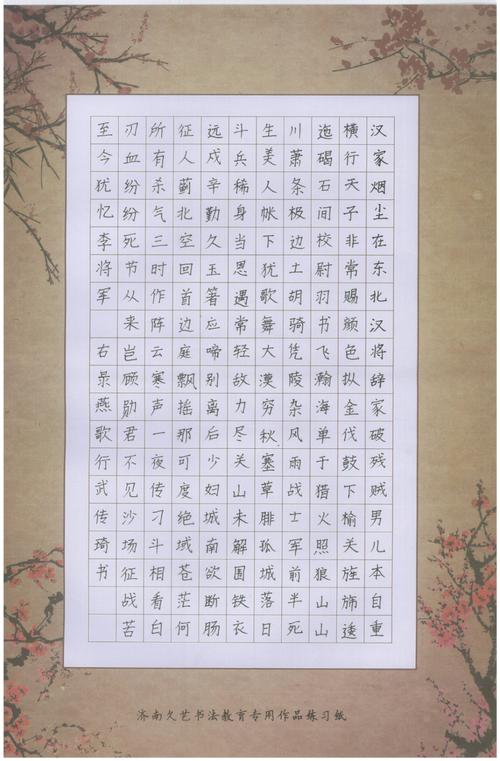 汉家烟尘在东北汉将辞家破残贼男儿本自重
横行天子非常赐颜色枞金伐鼓下榆关旌旆逶
迤碣石间校尉羽书飞瀚海单于猎火照狼山山
川萧条极边土胡骑凭陵杂风雨战士军前半死
生美人帐下犹歌舞大漠穷秋塞草腓孤城落日
斗兵稀身当恩遇常轻敌力尽关山未解围铁衣
远戍辛勤久玉箸应啼别离后少妇城南欲断肠
征人蓟北空回首边庭飘摇那可度绝域苍茫何
所有杀气三时作阵云寒声一夜传刁斗相看白
刃血纷纷死节从来岂顾勋君不见沙场征战苦
至今犹忆李将军 右录燕歌行武传琦书
济南久艺书法教育专用作品练习纸